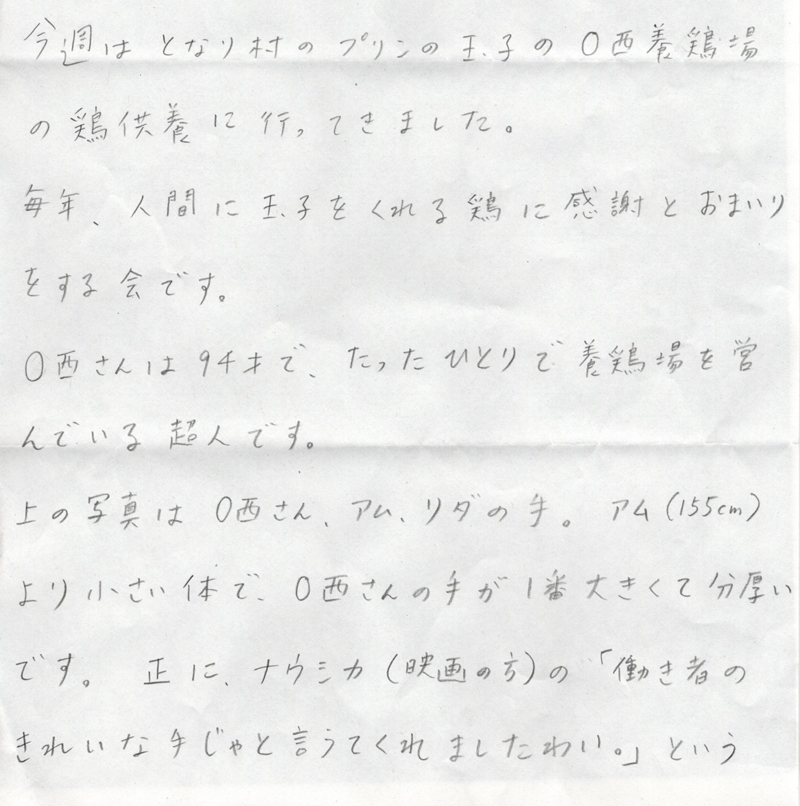 今週は となり村の プリンの 玉子の 〇西養鶏場
の 鶏供養に 行ってきました。
毎年、人間に 玉子を くれる 鶏に 感謝と おまいり
をする 会です。
〇西さんは 94才で、たった ひとりで 養鶏場を 営
んでいる 超人です。
上の 写真は 〇西さん、アム、リダの 手。 アム(155cm)
より 小さい 体で、〇西さんの 手が 1番 大きくて 分厚い
です。 正に、ナウシカ(映画の方)の「働き者の
きれいな 手じゃと 言うてくれましたわい。」という